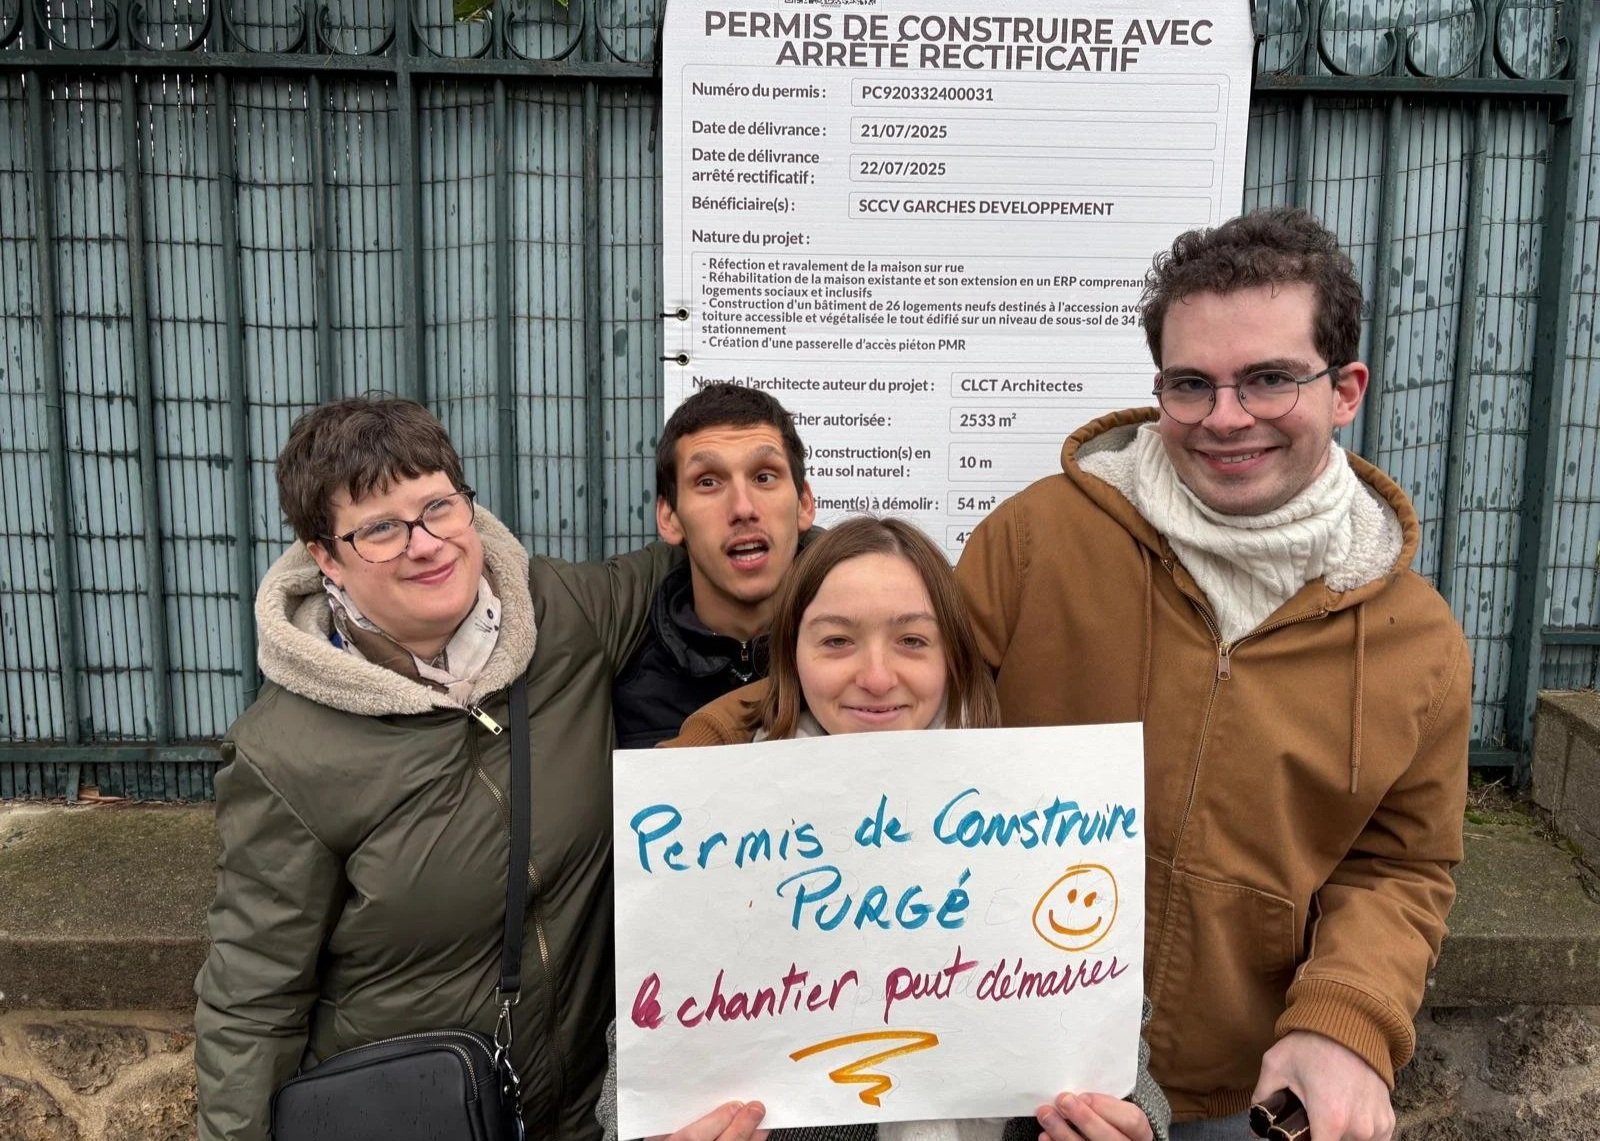 PERMIS DE CONSTRUIRE AVEC
ARRÊTÉ RECTIFICATIF
Numéro du permis : PC920332400031
Date de délivrance : 21/07/2025
Date de délivrance
arrêté rectificatif : 22/07/2025
Bénéficiaire(s) : SCCV GARCHES DEVELOPPEMENT
Nature du projet :
- Réfection et ravalement de la maison sur rue
- Réhabilitation de la maison existante et son extension en un ERP comprenant
logements sociaux et inclusifs
- Construction d'un bâtiment de 26 logements neufs destinés à l'accession
toiture accessible et végétalisée le tout édifié sur un niveau de sous-sol de 34
stationnement
- Création d'une passerelle d'accès piéton PMR
Nom de l'architecte auteur du projet : CLCT Architectes
autorisée : 2533 m²
construction(s) en
au sol naturel : 10 m
à démolir : 54 m²
Permis de Construire
PURGÉ
le chantier peut démarrer